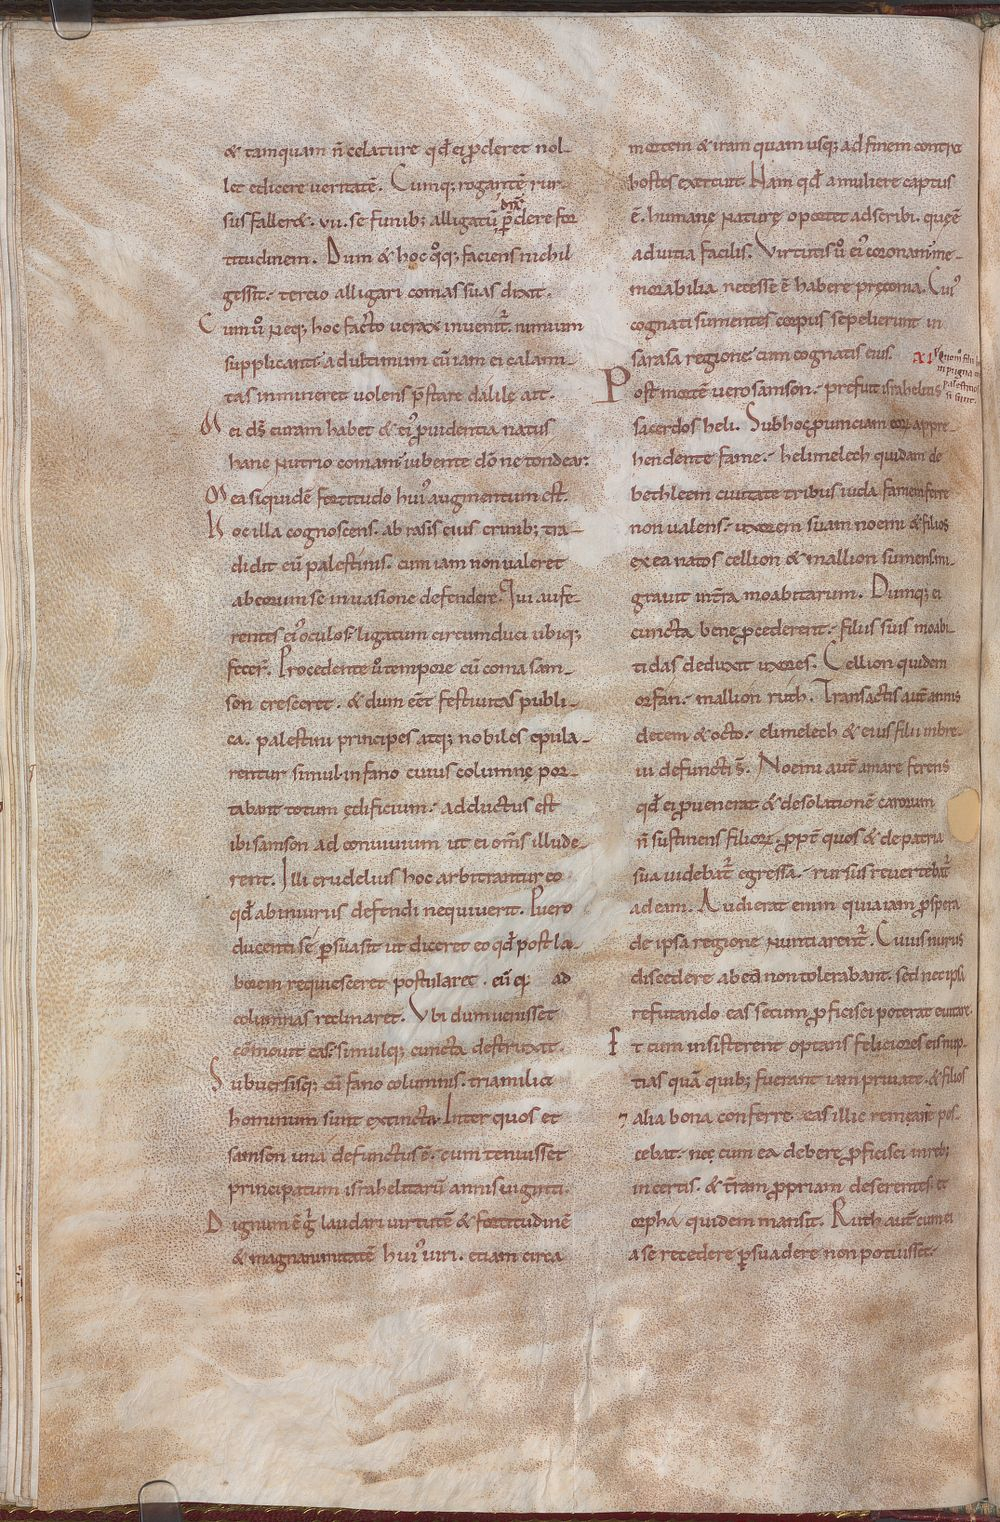 & tamquam n̄ celature qđ ei ꝓderet nol-
let edicere veritatē. Cumq; rogantē rur-
sus falleret. vii. se funib; alligatū ꝑdere for
titudinem. Dum & hoc q̊q; faciens nichil
gessit. tercio alligari comas suas dixit.
Cum ů neq; hoc facto verax inuenit̃. nimium
supplicanti. ad ultimum cū iam ei calami
tas inmineret uolens p̄stare dalile ait.
Mei d̄s curam habet & ei᾽ ꝓuidentia natus
hanc nutrio comam. iubente dō ne tondear:
Mea siquidē fortitudo hui᾽ augmentum est.
Hoc illa cognoscens. ab rasis eius crinib; tra-
didit eū palestinis. cum iam non ualeret
ab eorum se inuasione defendere. Qui aufe-
rentes ei᾽ oculos. ligatum circumduci ubiq;
fecer̄. Procedente ů tempore cū coma sam-
son cresceret. & dum eēt festiuitas publi-
ca. palestini principes atq; nobiles epula-
rentur simul. in fano cuius columnę por-
tabant totum ędificium. adductus est
ibi samson ad conuiuium ut ei om̄s illude-
rent. Illi crudelius hoc arbitrantur eo
qđ ab iniuriis defendi nequiuerit. Puero
ducenti se ꝑsuasit ut diceret eo qđ post la-
borem requiescere postularet. eūq; ad
columnas reclinaret. Vbi dum uenisset
cōmouit eas. simulq; cuncta destruxit.
Subuersisq; cū fano columnis. tria milia
hominum sunt extincta. Inter quos et
samson una defunctus ē. cum tenuisset
principatum israhelitarū annis uiginti.
Dignum ē g̊ laudari uirtutē & fortitudinē
& magnanimitatē hui᾽ uiri. etiam circa
mortem & iram quam usq; ad finem contra
hostes exercuit. Nam qđ a muliere captus
ē. humanę naturę oportet adscribi. quę ē
ad uitia facilis. Virtutis ů ei᾽ coronam. me-
morabilia necesse ē habere pręconia. Cui᾽
cognati sumentes corpus sepelierunt in
sarasa regione cum cognatis eius.
XI
Post mortē vero samson. prefuit israhelitis
sacerdos heli. Sub hoc ꝓuinciam eorū appre-
hendente fame. helimelech quidam de
bethleem ciuitate tribus iuda famem ferre
non ualens. uxorem suam noemi & filios
ex ea natos cellion & mallion sumens. mi-
grauit int̃ra moabitarum. Dumq; ei
cuncta bene ꝓcederent. filiis suis moabi-
tidas deduxit uxores. Cellion quidem
orfan. mallion ruth. Transactis aut̄ annis
decem & octo. elimelech & eius filii in bre-
ui defuncti s̄. Noemi aut̄ amare ferens
qđ ei ꝓuenerat & desolationē carorum
n̄ sustinens filiorꝫ. ꝓpt̃ quos & de patria
sua uidebat̃ egressa. rursus reuertebat̃
ad eam. Audierat enim quia iam ꝓspera
de ipsa regione nuntiarent̃. Cuius nurus
discedere ab ea non tolerabant. sed nec ipsa
refutando eas secum ꝓficisci poterat euitare.
Et cum insisterent optans feliciores eis nup-
tias quā quib; fuerant iam priuate. & filios
⁊ alia bona conferre. eas illic remeare pos-
cebat. nec cum ea debere ꝓficisci in reb;
incertis. & t̃ram ꝓpriam deserentes. et
orpha quidem mansit. Ruth aut̄ cum ei
a se recedere ꝑsuadere non potuisset.